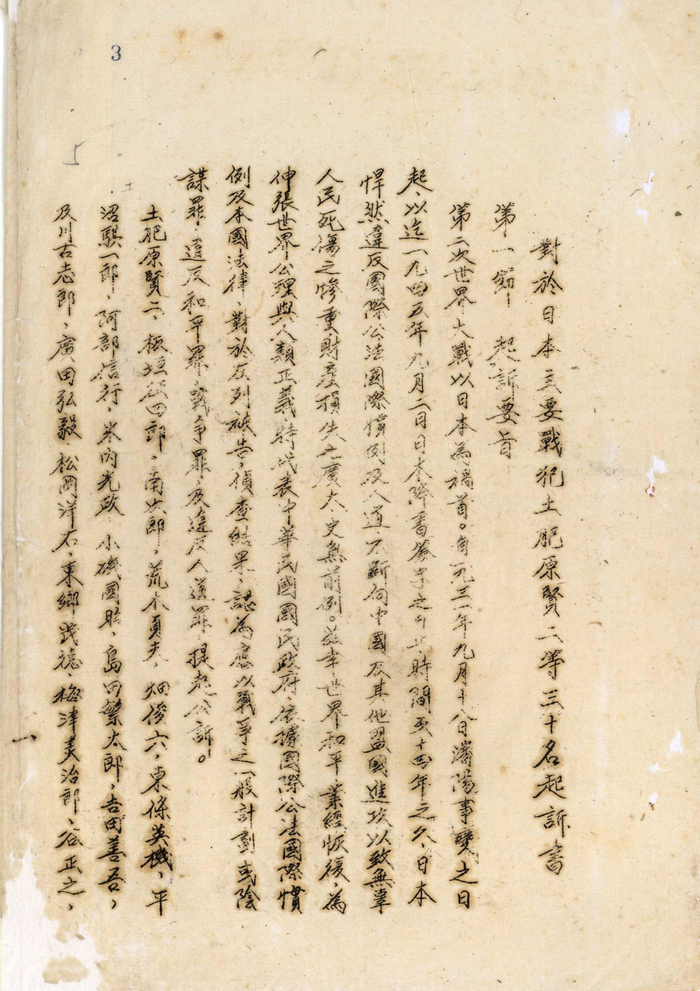 3
對於日本主要戰犯土肥原賢二等三十名起訴書
第一節 起訴要旨
第二次世界大戰以日本為禍首。自一九三一年九月十八日瀋陽事變之日
起，以迄一九四五年九月二日日本降書簽字之日止，時間至十四年之久，日本
悍然違反國際公法國際慣例及人道，不斷向中國及其他盟國進攻以致無辜
人民死傷之慘重，財產損失之廣大，史無前例。茲幸世界和平，業經恢復，為
伸張世界公理與人類正義，特代表中華民國國民政府，依據國際公法國際慣
例及本國法律，對於左列被告，偵查結果，認為應以戰爭之一般計劃或陰
謀罪，違反和平罪，戰爭罪，及違反人道罪，提起公訴。
土肥原賢二，板垣征四郎，南次郎，荒木貞夫，畑俊六，東條英機，平
沼騏一郎，阿部信行，米內光政，小磯國昭，島田繁太郎，吉田善吾，
及川古志郎，廣田弘毅，松岡洋右，東鄉茂德，梅津美治郎，谷正之，
一